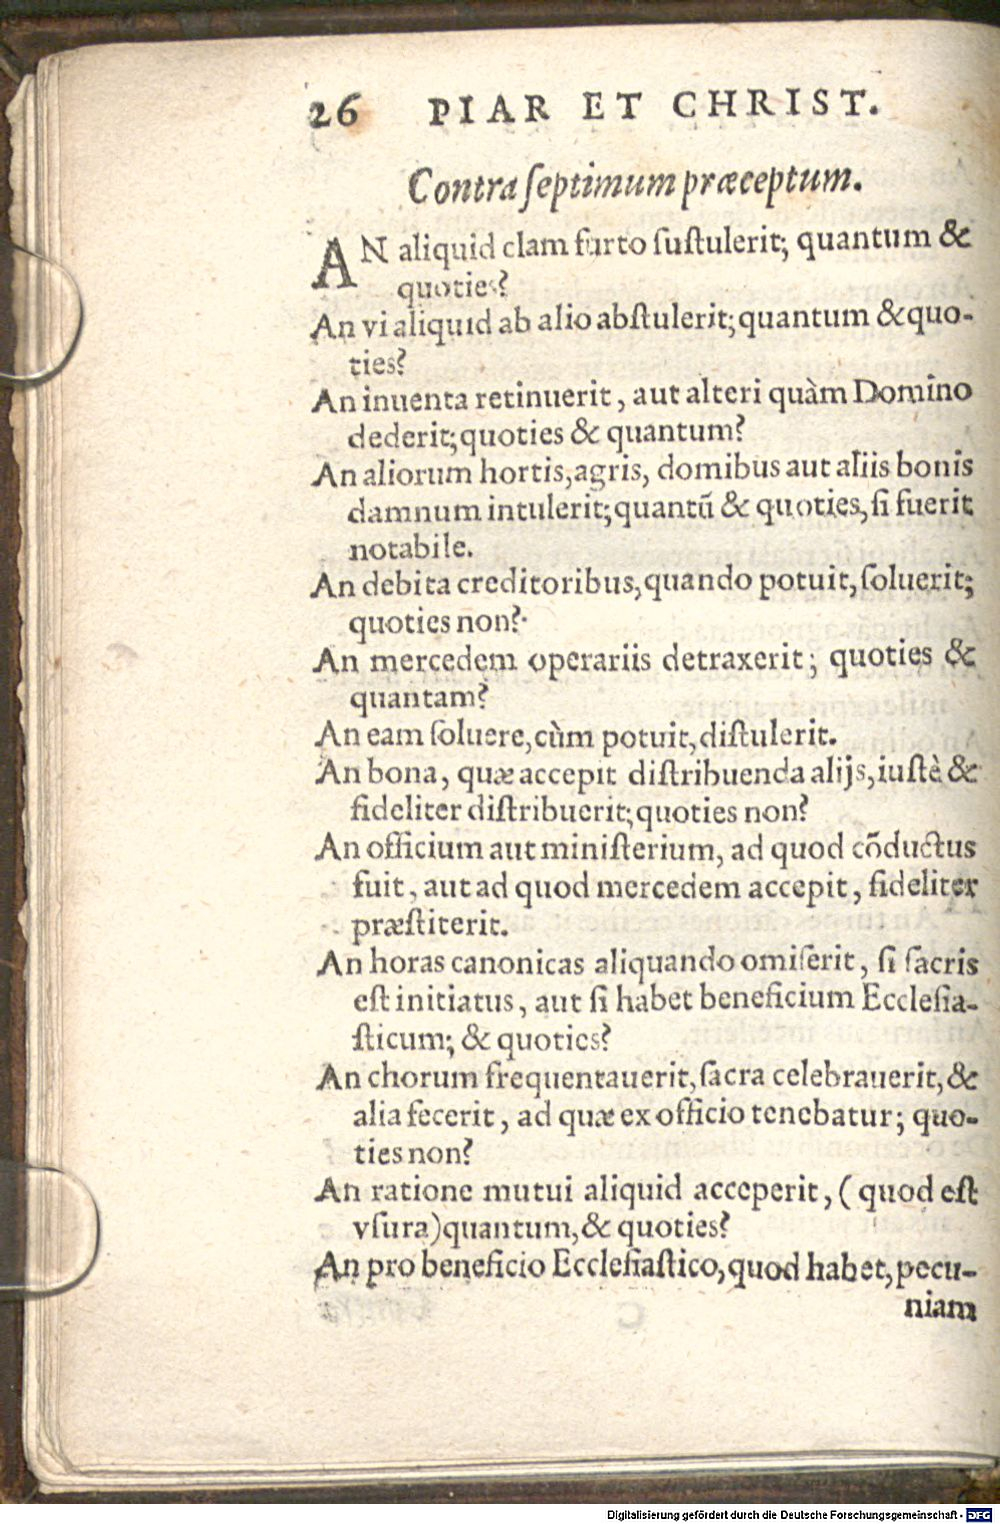 26 PIAR ET CHRIST.
Contra ſeptimum præceptum.
AN aliquid clam furto ſuſtulerit; quantum &
quoties?
An vi aliquid ab alio abſtulerit; quantum & quo-
ties?
An inuenta retinuerit, aut alteri quàm Domino
dederit; quoties & quantum?
An aliorum hortis, agris, domibus aut aliis bonis
damnum intulerit; quantū & quoties, ſi fuerit
notabile.
An debita creditoribus, quando potuit, ſoluerit;
quoties non?
An mercedem operariis detraxerit; quoties &
quantam?
An eam ſoluere, cùm potuit, diſtulerit.
An bona, quæ accepit diſtribuenda alijs, iuſtè &
fideliter diſtribuerit; quoties non?
An officium aut miniſterium, ad quod cōductus
fuit, aut ad quod mercedem accepit, fideliter
præſtiterit.
An horas canonicas aliquando omiſerit, ſi ſacris
eſt initiatus, aut ſi habet beneficium Eccleſia-
ſticum; & quoties?
An chorum frequentauerit, ſacra celebrauerit, &
alia fecerit, ad quæ ex officio tenebatur; quo-
ties non?
An ratione mutui aliquid acceperit, (quod eſt
vſura) quantum, & quoties?
An pro beneficio Eccleſiaſtico, quod habet, pecu-
niam
Digitalisierung gefördert durch die Deutsche Forschungsgemeinschaft - DFG